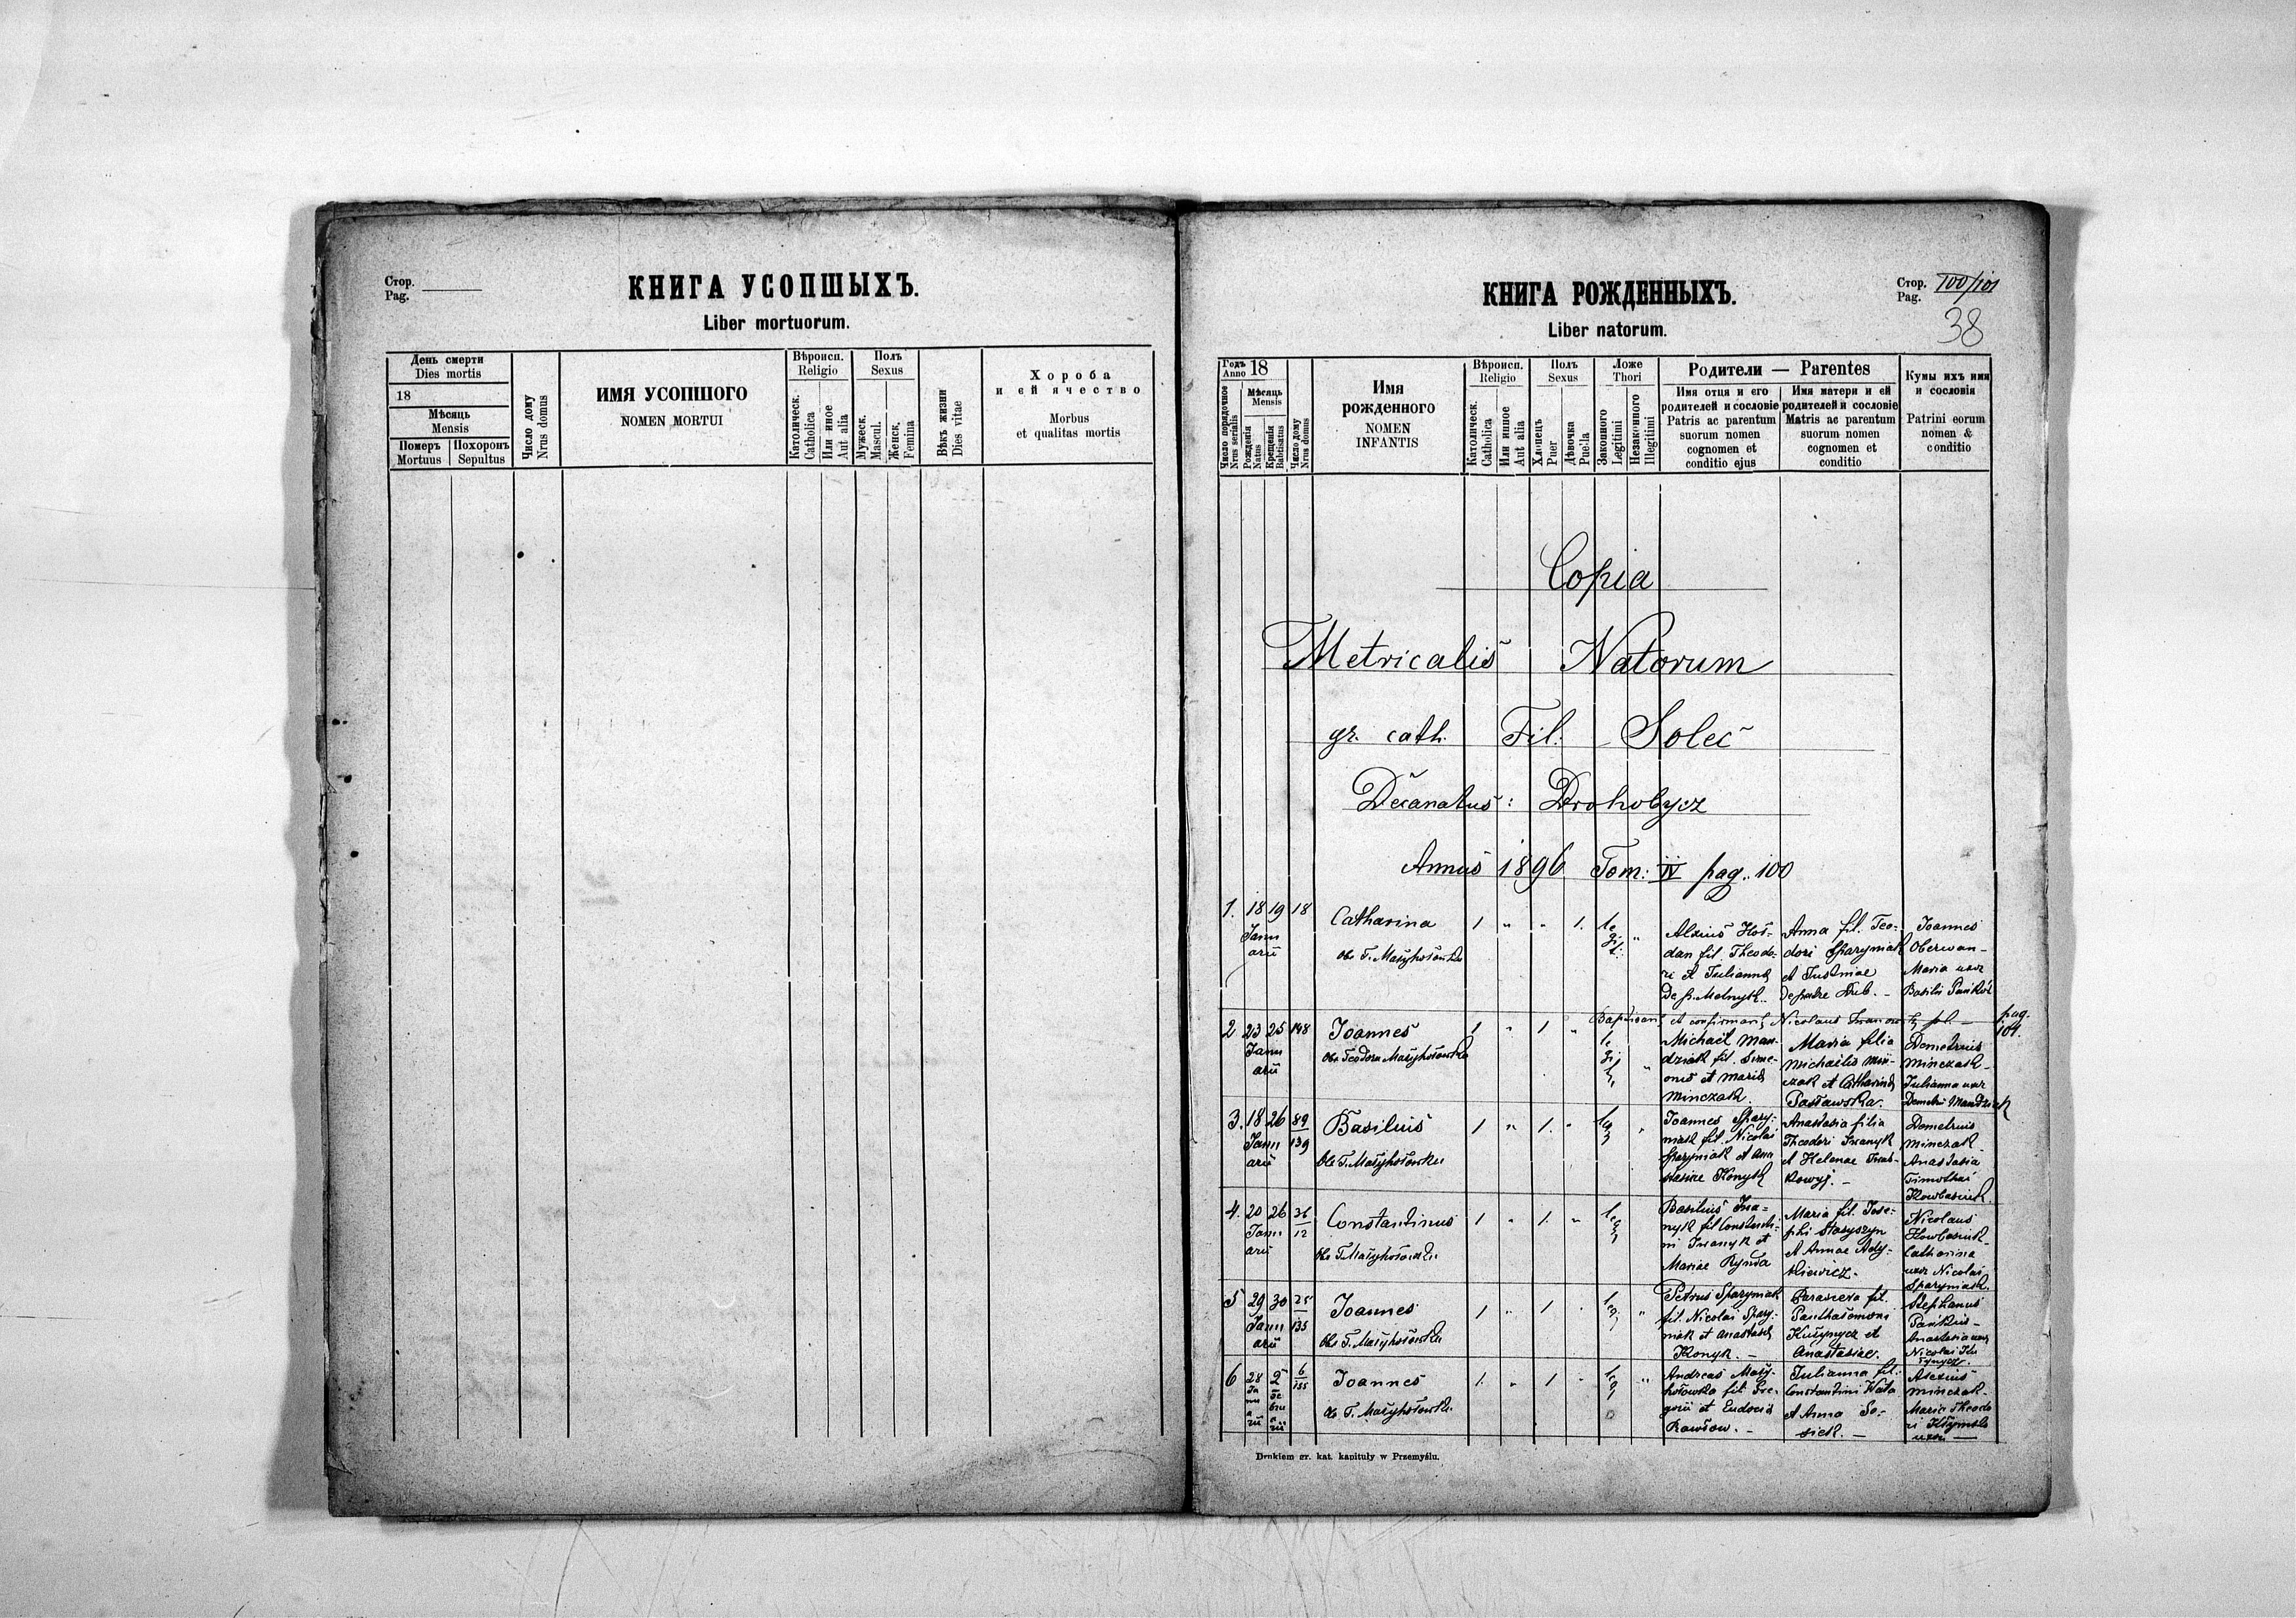 Стор.
Pag.
КНИГА УСОПШЫХЪ.
Liber mortuorum.
День смерти
Dies mortis
18
Мѣсяць
Mensis
Померъ
Mortuus
Похоронъ
Sepultus
Число дому
Nrus domus
ИМЯ УСОПШОГО
NOMEN MORTUI
Вѣроисп.
Religio
Католическ.
Catholica
Или иное
Aut alia
Полъ
Sexus
Мужеск.
Mascul.
Женск.
Femina
Вѣкъ жизни
Dies vitae
Хороба
и ей ячество
Morbus
et qualitas mortis
КНИГА РОЖДЕННЫХЪ.
Liber natorum.
Стор.
Pag. 100/101
38
Годъ
Anno 18
Число порядочное
Nrus serialis
Мѣсяць
Mensis
Рожденія
Natus
Крещенія
Babtisatus
Число дому
Nrus domus
Имя
рожденного
NOMEN
INFANTIS
Вѣроисп.
Religio
Католическ.
Catholica
Или иное
Aut alia
Полъ
Sexus
Хлопецъ
Puer
Дѣвочка
Puella
Ложе
Thori
Законного
Legitimi
Незаконного
Illegitimi
Родители — Parentes
Имя отця и его
родителей и сословіе
Patris ac parentum
suorum nomen
cognomen et
conditio ejus
Имя матери и ей
родителей и сословіе
Matris ac parentum
suorum nomen
cognomen et
conditio
Кумы ихъ имя
и сословія
Patrini eorum
nomen &
conditio
Copia
Metricalis Natorum
gr. cath. Fil. Solec
Decanatus: Drohobycz
Annus 1896 Tom: IV pag. 100
1. 18 19 18
Januarii
Catharina
1 " " 1. legit. "
dan fil. Theodori et Julianna
De p. Melnyk.
Anna fil. Teodori Sparyniak
et Justinae
Joannes
Oberwan-
Maria uxor
Basilii Pańków
pag.
101.
2 23 25 148
Januarii
Joannes
1 " 1 "
Michael Mandziak fil. Simeonis et Mariae
Minczak.
Maria filia
Michaelis Minczak et Catharinae
Pasławska.
Demetrius
Minczak-
Julianna uxor
Demetri Mandziak
3. 18 26 89/139
Januarii
Basilius
1 " 1. " leg "
Joannes Sparyniak fil. Nicolai
Sparyniak et Anastasiae Konyk
Anastasia filia
Theodori Iwanyk
et Helenae
Demetrius
Minczak
Anastasia
Timothei
4. 20 26 36/12
Januarii
Constantinus
1 " 1. " leg
Basilius Iwanyk fil Constantini Iwanyk et
Mariae Rynda
Maria fil. Josephi Stasyszyn
et Annae
Nicolaus
Catharina
uxor Nicolai
Sparyniak.
5 29 30 25/135
Januarii
Joannes
1 " 1 " leg. "
Petrus Sparyniak
fil. Nicolai Sparyniak et Anastasiae
Konyk. -
Parasceva fil.
et
Anastasiae.
Stephanus
Pańkus-
Anastasia uxor
Nicolai
6 28 2 6/155
Januarii Februarii
Joannes
1. " 1 " leg "
Andreas
fil. Gregorii et Eudocia
Julianna fil.
Constantini
et Anna
Alexius
Minczak-
Maria Theodori
uxor
Drukiem gr. kat. kapituły w Przemyślu.